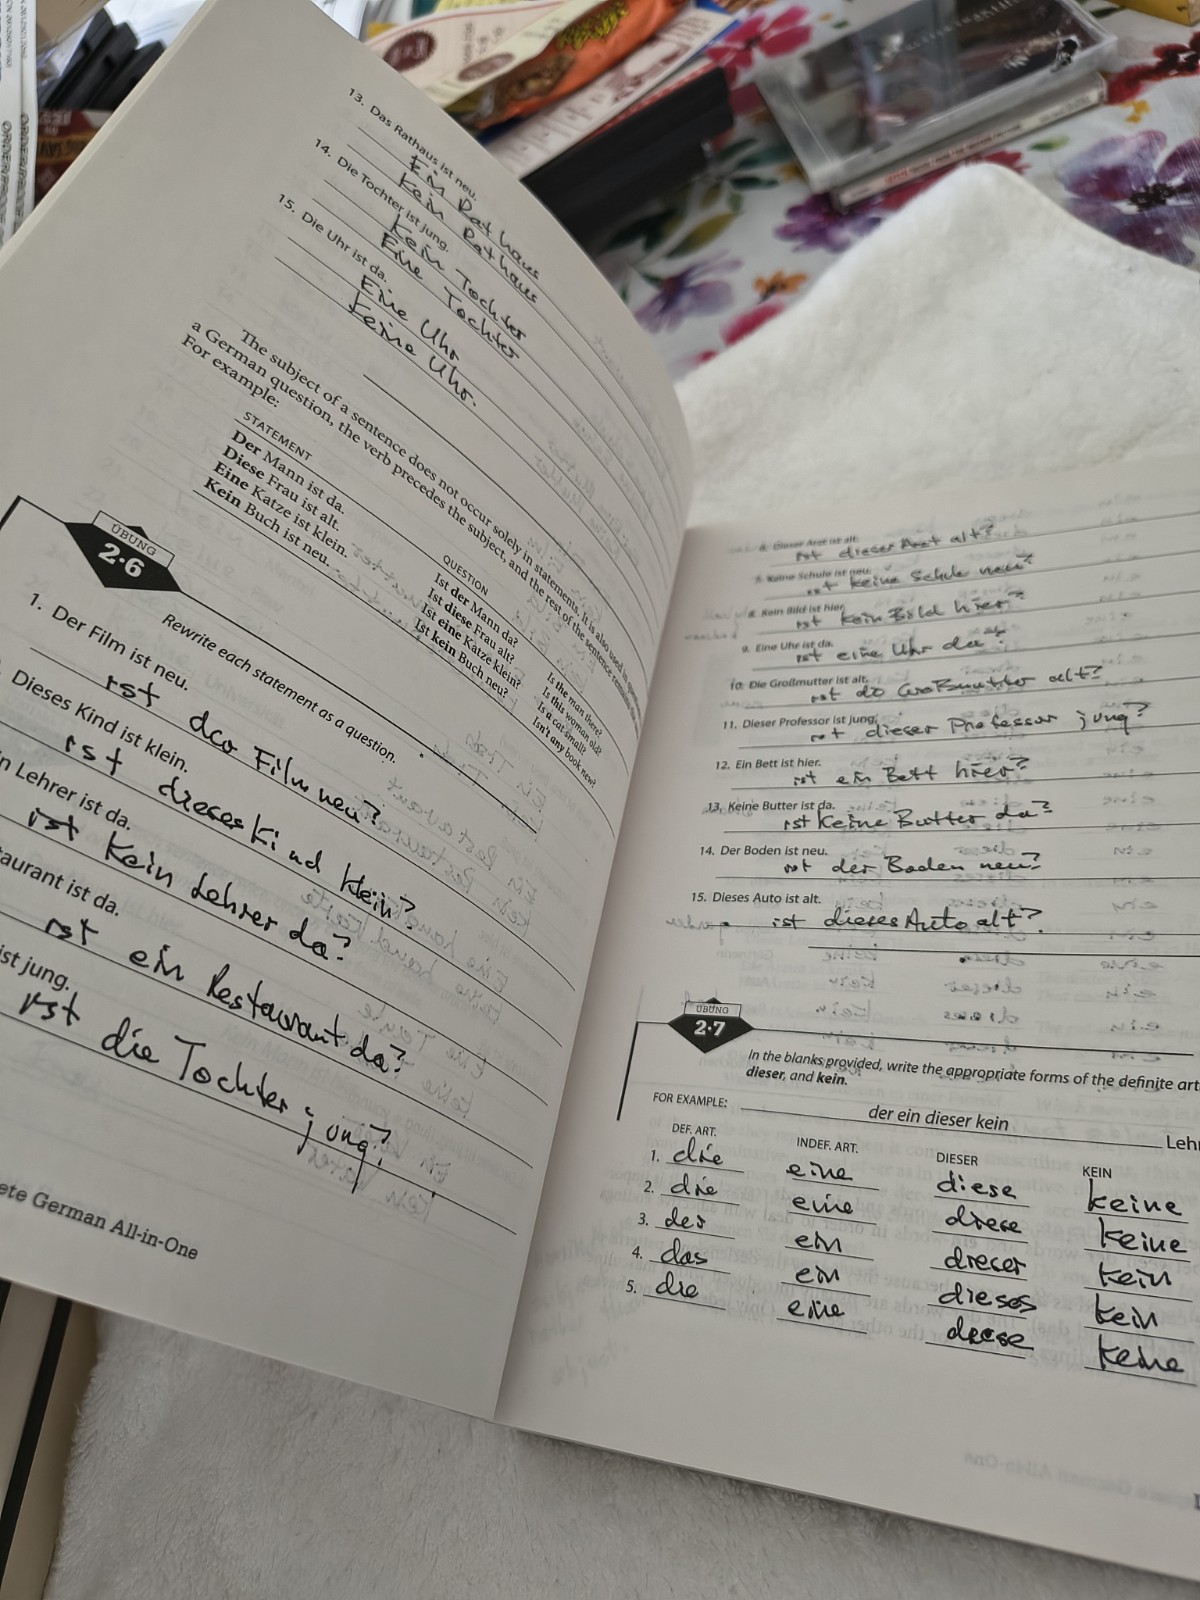 13. Das Rathaus ist neu.
Ein Rathaus
Kein Rathaus
14. Die Tochter ist jung.
Kein Tochter
Eine Tochter
15. Die Uhr ist da.
Eine Uhr
Keine Uhr.
The subject of a sentence does not occur solely in statements. It is also used in
a German question, the verb precedes the subject, and the rest of the sentence
For example:
STATEMENT
QUESTION
Der Mann ist da.
Ist der Mann da?
Is the man there?
Diese Frau ist alt.
Ist diese Frau alt?
Is this woman old?
Eine Katze ist klein.
Ist eine Katze klein?
Is a cat small?
Kein Buch ist neu.
Ist kein Buch neu?
Isn't any book new?
ÜBUNG
2·6
Rewrite each statement as a question.
1. Der Film ist neu.
ist der Film neu?
Dieses Kind ist klein.
ist dieses Kind klein?
n Lehrer ist da.
ist Kein Lehrer da?
taurant ist da.
ist ein Restaurant da?
ist jung.
ist die Tochter jung?
ete German All-in-One
6. Dieser Arzt ist alt.
ist dieser Arzt alt?
7. Keine Schule ist neu.
ist keine Schule neu?
8. Kein Bild ist hier.
ist kein Bild hier?
9. Eine Uhr ist da.
ist eine Uhr da?
10. Die Großmutter ist alt.
ist die Großmutter alt?
11. Dieser Professor ist jung.
ist dieser Professor jung?
12. Ein Bett ist hier.
ist ein Bett hier?
13. Keine Butter ist da.
ist Keine Butter da?
14. Der Boden ist neu.
ist der Boden neu?
15. Dieses Auto ist alt.
ist dieses Auto alt?
ÜBUNG
2·7
In the blanks provided, write the appropriate forms of the definite art
dieser, and kein.
FOR EXAMPLE: der ein dieser kein Lehr
DEF. ART. INDEF. ART. DIESER KEIN
1. die eine diese keine
2. die eine diese keine
3. der ein dieser kein
4. das ein dieses kein
5. die eine diese keine